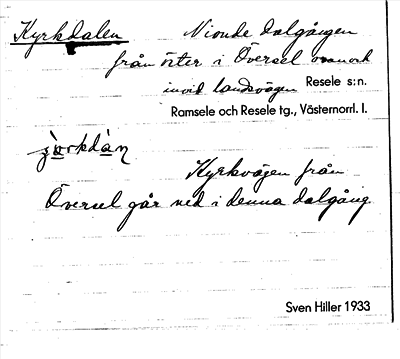 Kyrkdalen Nionde dalgången
från öster i Översel ovanock
invid landsvägen Resele s:n.
Ramsele och Resele tg., Västernorrl. l.
Kyrkvägen från
Översel går ned i denna dalgång.
Sven Hiller 1933